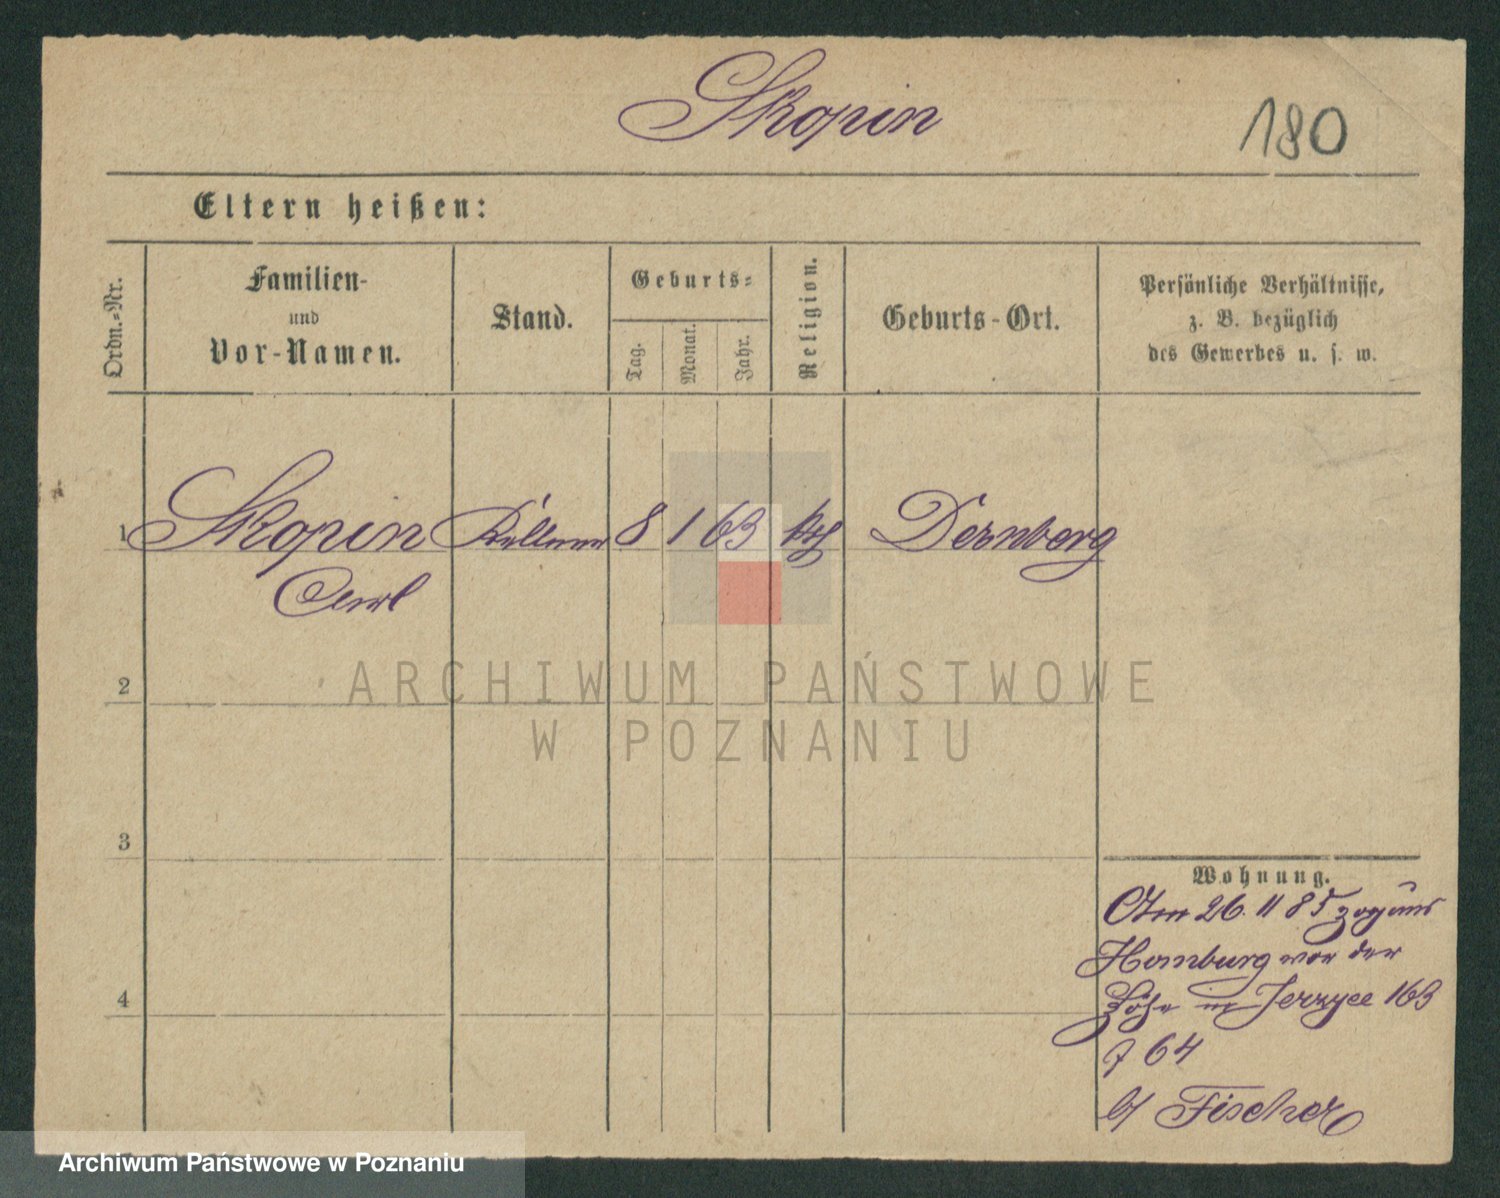 Skopin
180
Eltern heißen:
Ordn.-Nr.
Familien-
und
Vor-Namen.
Stand.
Geburts-
Tag.
Monat.
Jahr.
Religion.
Geburts-Ort.
Persönliche Verhältnisse,
z. B. bezüglich
des Gewerbes u. s. w.
1 Skopin Kellner 8 1 63 kth Dernberg
Carl
2
3
4
Wohnung.
Am 26. 11 85 zog aus
Homburg vor der
Höhe in Jerzyce 163
64
b/ Fischer
ARCHIWUM PAŃSTWOWE
W POZNANIU
Archiwum Państwowe w Poznaniu